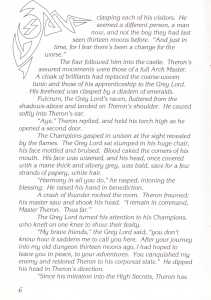 clasping each of his visitors. He
seemed a different person, a man
now, and not the boy they had last
seen thirteen moons before. "And just in
time, for I fear there's been a change for the
worse."
The four followed him into the castle. Theron's
assured movements were those of a full Arch Master.
A cloak of brilliants had replaced the coarse-woven
tunic and those of his apprenticeship to the Grey Lord.
His forehead was clasped by a diadem of emeralds.
Fulcrum, the Grey Lord's raven, fluttered from the
shadows above and landed on Theron's shoulder. He cawed
softly into Theron's ear.
"Aye," Theron replied, and held his torch high as he
opened a second door.
The Champions gasped in unison at the sight revealed
by the flames. The Grey Lord sat slumped in his huge chair,
his face mottled and bruised. Blood caked the corners of his
mouth. His jaw was unsexed, and his head, once covered
with a mane thick and silvery grey, was bald, save for a few
strands of papery, white hair.
"Harmony in all you do," he rasped, intoning the
blessing. He raised his hand in benediction.
A crash of thunder mocked the room. Theron mourned;
his master saw and shook his head. "I remain in command,
Master Theron. Thus far."
The Grey Lord turned his attention to his Champions,
who knelt on one knee to show their fealty.
"My brave friends," the Grey Lord said, "you don't
know how it saddens me to call you here. After your journey
into my old dungeon thirteen moons ago, I had hoped to
leave you in peace, to your adventures. You vanquished my
enemy and restored Theron to his corporeal state." He dipped
his head in Theron's direction.
"Since his initiation into the High Secrets, Theron has
6